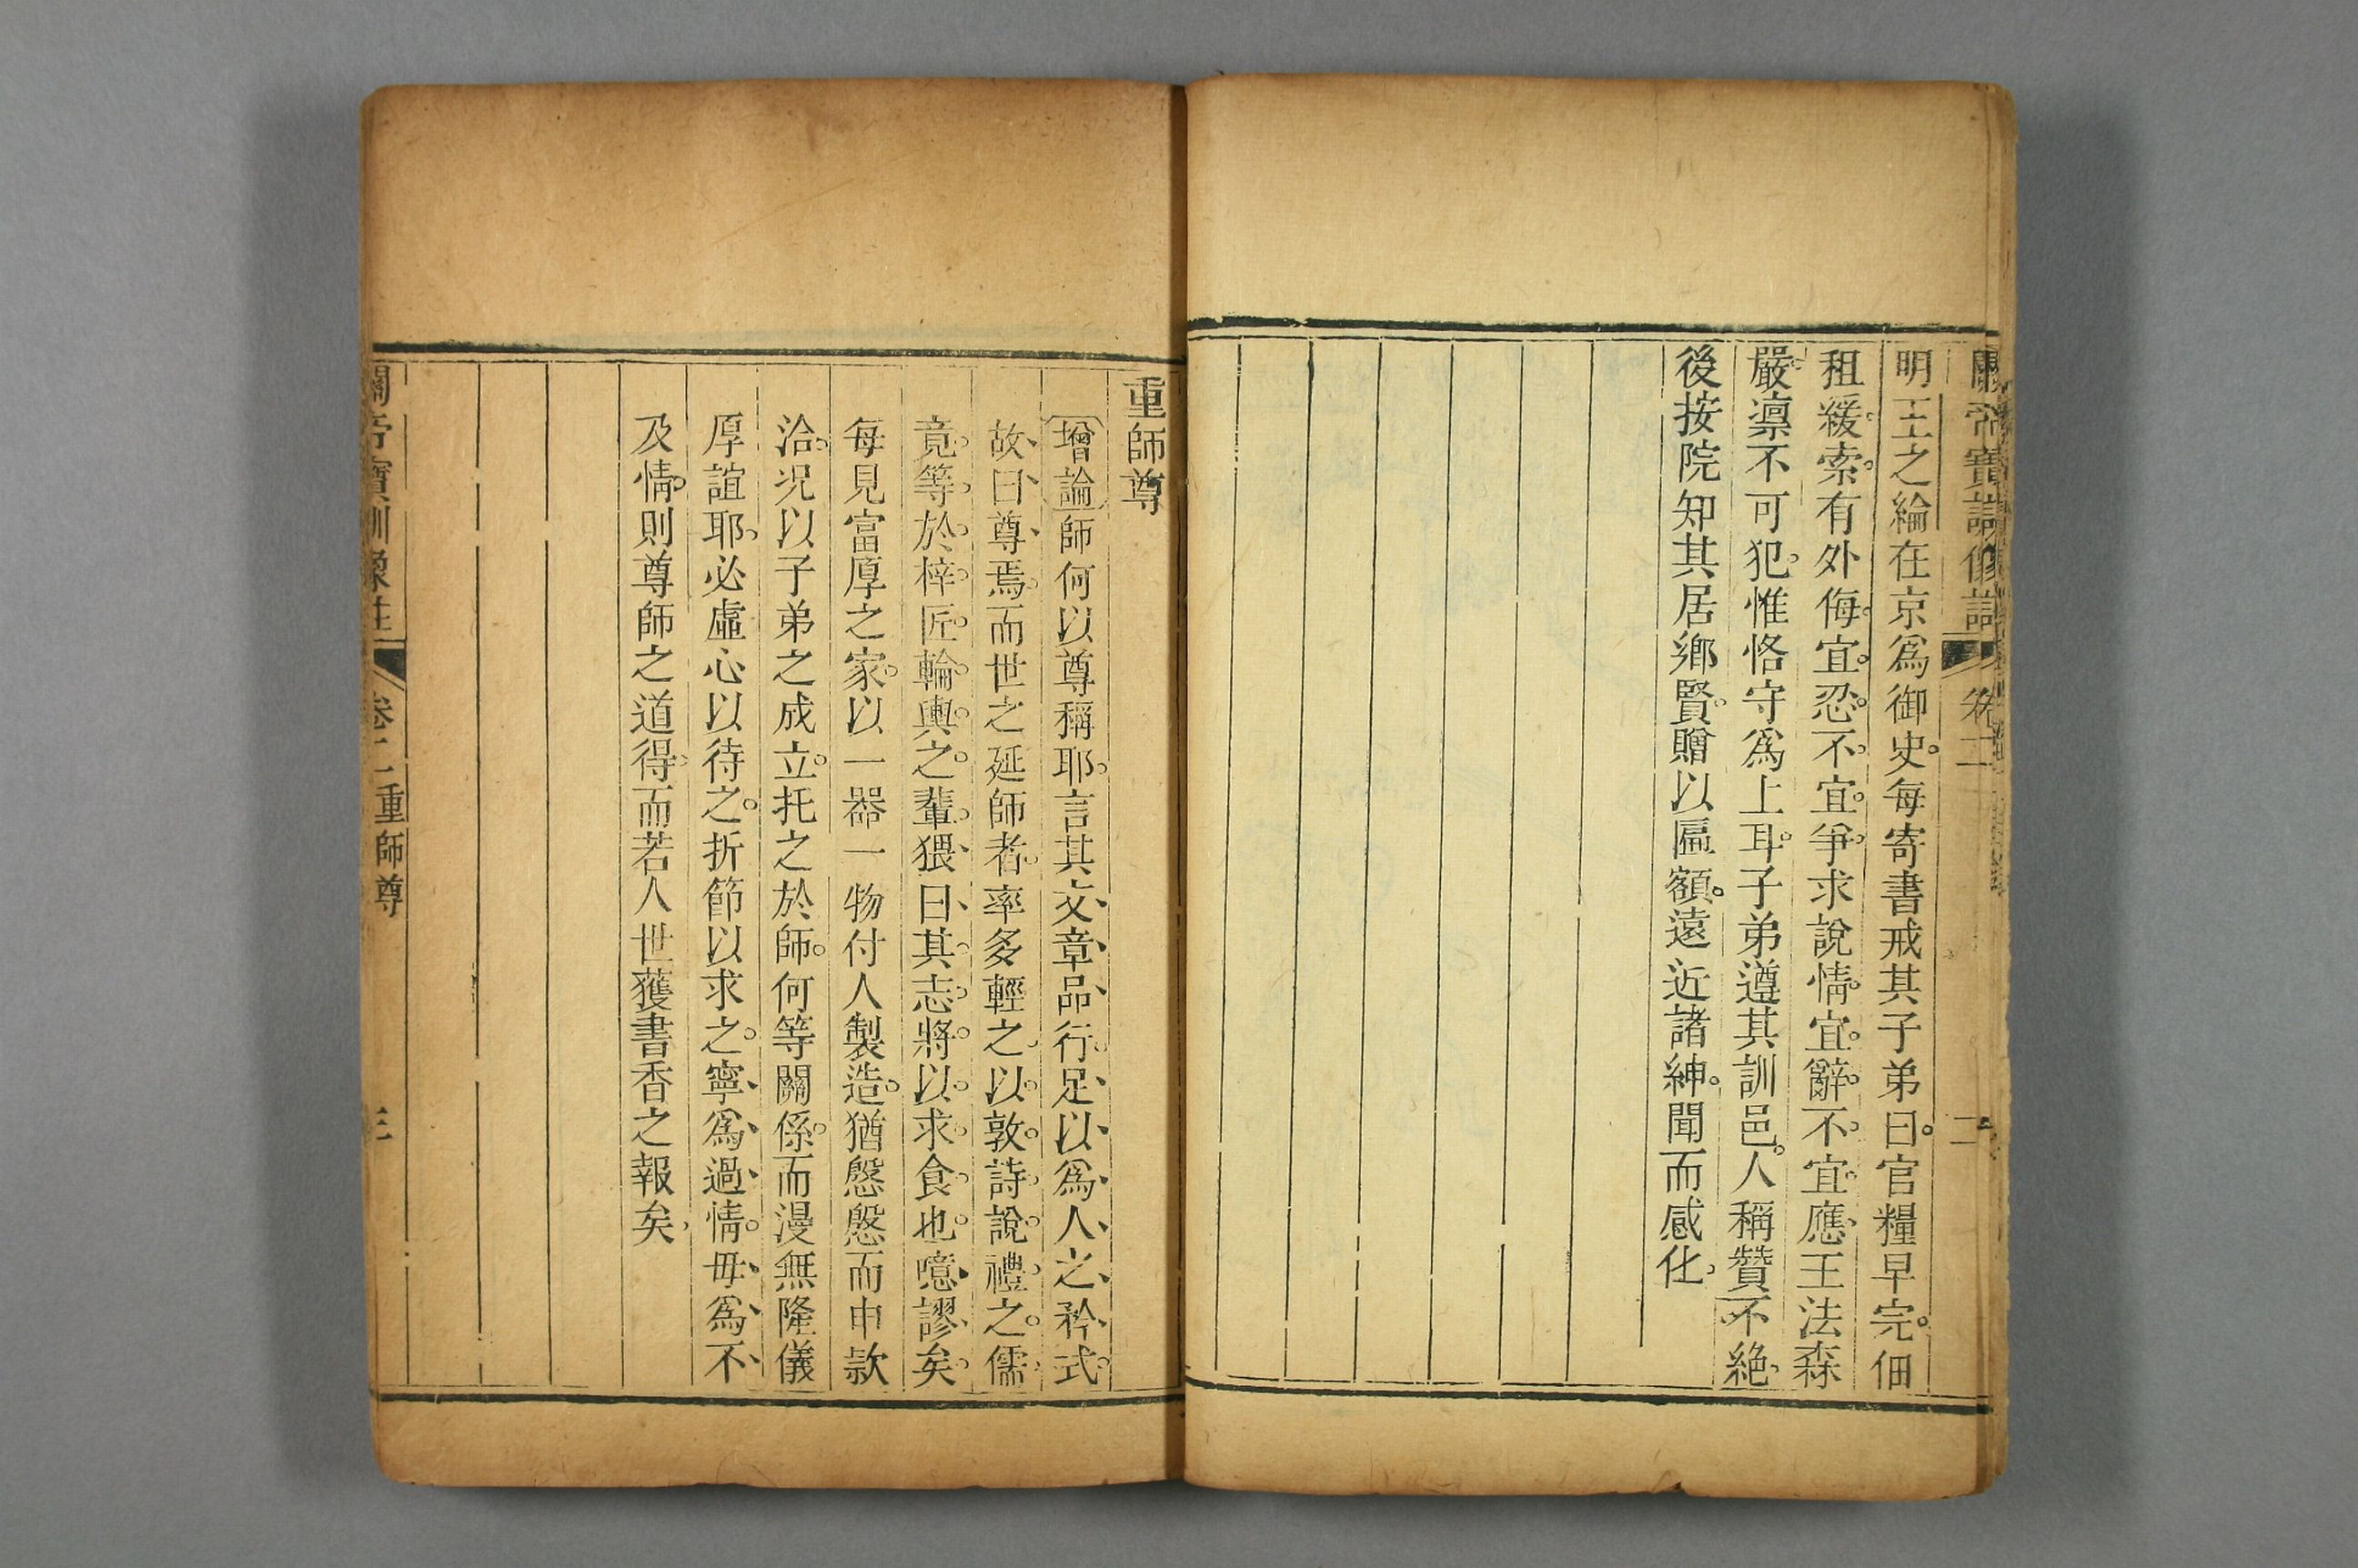 關帝寶訓像註 卷二 二
明王之綸在京爲御史每寄書戒其子弟曰官糧早完佃
租緩索有外侮宜忍不宜爭求說情宜辭不宜應王法森
嚴凛不可犯惟恪守爲上耳子弟遵其訓邑人稱贊不絶
後按院知其居鄉賢贈以匾額遠近諸紳聞而感化
重師尊
增論師何以尊稱耶言其文章品行足以爲人之矜式
故曰尊焉而世之延師者率多輕之以敦詩說禮之儒
竟等於梓匠輪輿之輩猥曰其志將以求食也噫謬矣
每見富厚之家以一器一物付人製造猶慇慇而申款
洽况以子弟之成立托之於師何等關係而漫無隆儀
厚誼耶必虛心以待之折節以求之寧爲過情毋爲不
及情則尊師之道得而若人世獲書香之報矣
關帝寶訓像註 卷二 重師尊 三